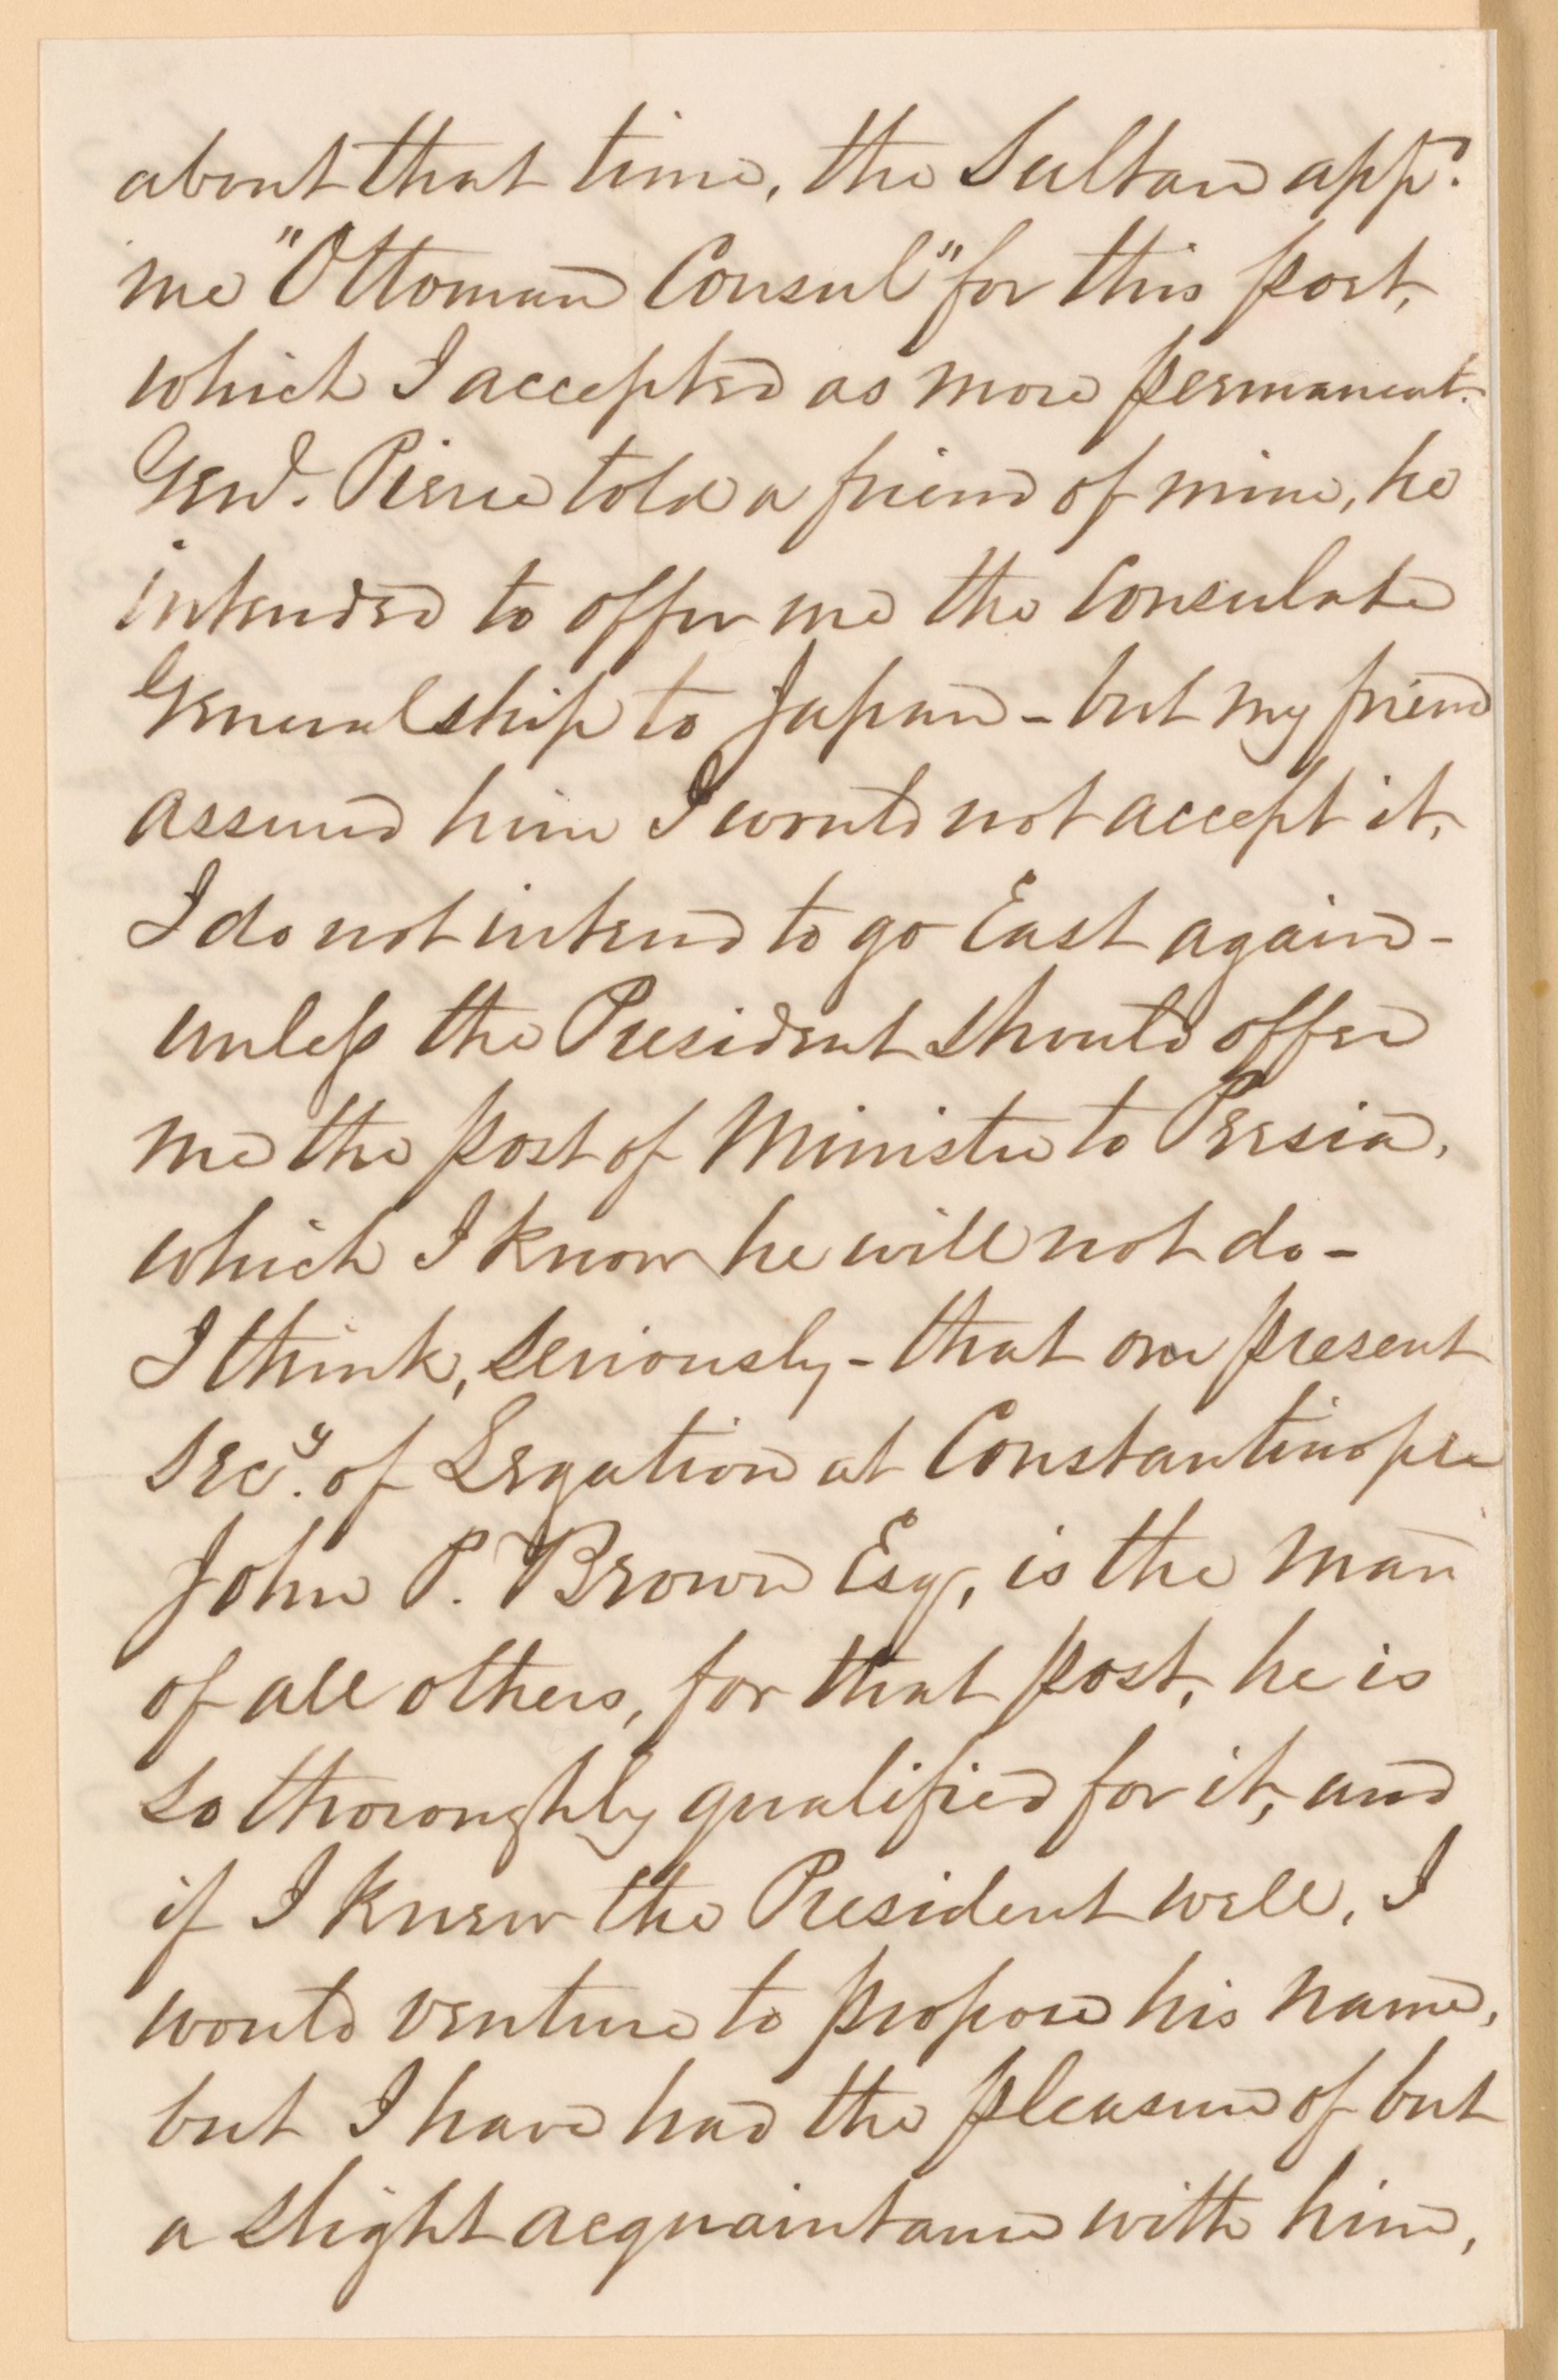 about that time, the Sultan appd.
me "Ottoman Consul" for this port,
which I accepted as more permanent.
Genl. Pierce told a friend of mine, he
intended to offer me the Consulate
Generalship to Japan - but my friend
assured him I would not accept it,
I do not intend to go East again -
unless the President should offer
me the post of Minister to Persia,
which I know he will not do -
I think, seriously - that our present
Secy. of Legation at Constantinople
John P. Brown Esq, is the man
of all others, for that post, he is
so thoroughly qualified for it, and
if I knew the President well, I
would venture to propose his name,
but I have had the pleasure of but
a slight acquaintance with him,